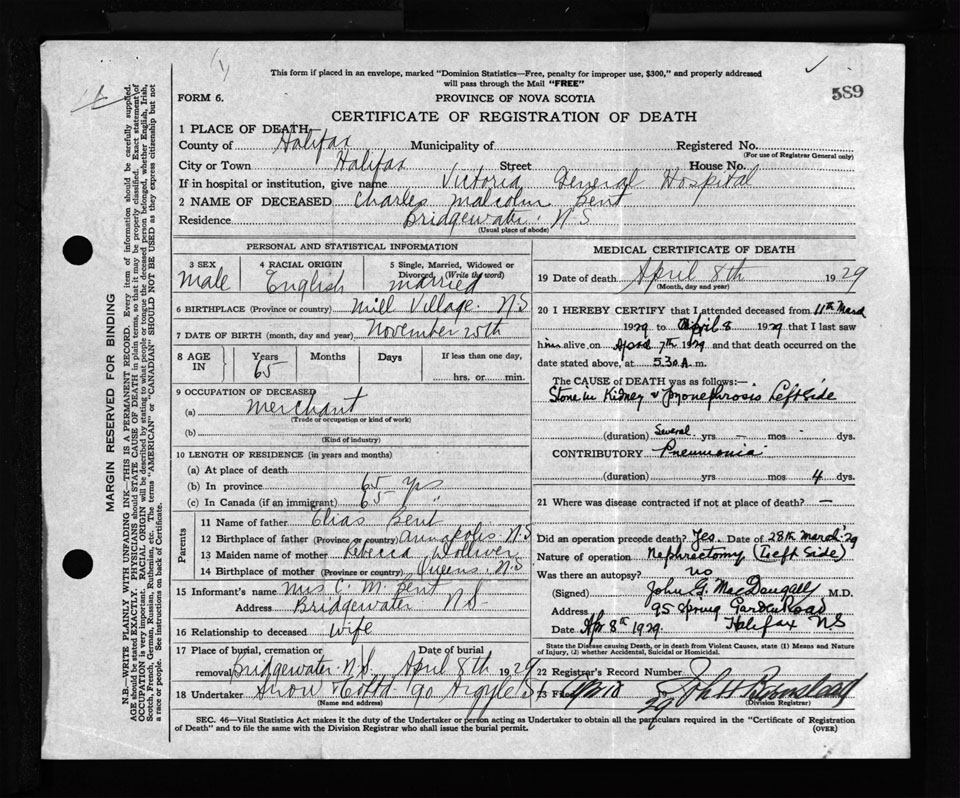 This form if placed in an envelope, marked "Dominion Statistics—Free, penalty for improper use, $300," and properly addressed
will pass through the Mail "FREE"
589
FORM 6.
PROVINCE OF NOVA SCOTIA
CERTIFICATE OF REGISTRATION OF DEATH
1 PLACE OF DEATH
County of Halifax Municipality of Registered No.
(For use of Registrar General only)
City or Town Halifax Street House No.
If in hospital or institution, give name Victoria General Hospital
2 NAME OF DECEASED Charles Malcolm Bent
Residence Bridgewater N.S
(Usual place of abode)
PERSONAL AND STATISTICAL INFORMATION
3 SEX 4 RACIAL ORIGIN 5 Single, Married, Widowed or
Divorced (Write the word)
Male English married
6 BIRTHPLACE (Province or country) Mill Village. N.S
7 DATE OF BIRTH (month, day and year) November 25th
8 AGE IN Years Months Days If less than one day,
65 hrs. or min.
9 OCCUPATION OF DECEASED
(a) Merchant
(Trade or occupation or kind of work)
(b)
(Kind of industry)
10 LENGTH OF RESIDENCE (in years and months)
(a) At place of death
(b) In province 65 yrs
(c) In Canada (if an immigrant) 65 "
Parents
11 Name of father Elias Bent
12 Birthplace of father (Province or country) Annapolis N.S
13 Maiden name of mother Rebecca Wolliver
14 Birthplace of mother (Province or country) Queens. N.S
15 Informant's name Mrs C. M. Bent
Address Bridgewater N.S.
16 Relationship to deceased Wife
17 Place of burial, cremation or Date of burial
removal Bridgewater N.S. April 8th 1929
18 Undertaker Snow & Co Ltd 90 Argyle St
(Name and address)
MEDICAL CERTIFICATE OF DEATH
19 Date of death April 8th 1929
(Month, day and year)
20 I HEREBY CERTIFY that I attended deceased from 11th March
1929 to April 8 1929 that I last saw
him alive, on April 7th 1929 and that death occurred on the
date stated above, at 5.30 A. m.
The CAUSE OF DEATH was as follows:—
Stone in Kidney & Pyonephrosis Left side
(duration) Several yrs — mos dys.
CONTRIBUTORY Pneumonia
(duration) yrs mos 4 dys.
21 Where was disease contracted if not at place of death? —
Did an operation precede death? Yes. Date of 28th March '29
Nature of operation Nephrectomy (Left Side)
Was there an autopsy? no
(Signed) John G. MacDougall M.D.
Address 95 Spring Garden Road
Date Apr 8th 1929. Halifax NS
State the Disease causing Death, or in death from Violent Causes, state (1) Means and Nature
of Injury, (2) whether Accidental, Suicidal or Homicidal.
22 Registrar's Record Number
23 Filed
(Division Registrar)
SEC. 46—Vital Statistics Act makes it the duty of the Undertaker or person acting as Undertaker to obtain all the particulars required in the "Certificate of Registration
of Death" and to file the same with the Division Registrar who shall issue the burial permit.
(OVER)
MARGIN RESERVED FOR BINDING
N.B.—WRITE PLAINLY WITH UNFADING INK—THIS IS A PERMANENT RECORD. Every item of information should be carefully supplied.
AGE should be stated EXACTLY. PHYSICIANS should STATE CAUSE OF DEATH in plain terms, so that it may be properly classified. Exact statement of
OCCUPATION is very important. RACIAL ORIGIN will be described by stating to what people or tongue the deceased person belonged, whether English, Irish,
Scotch, French, German, Russian, Ruthenian, etc. The terms "AMERICAN" or "CANADIAN" SHOULD NOT BE USED as they express citizenship but not
a race or people. See instructions on back of Certificate.